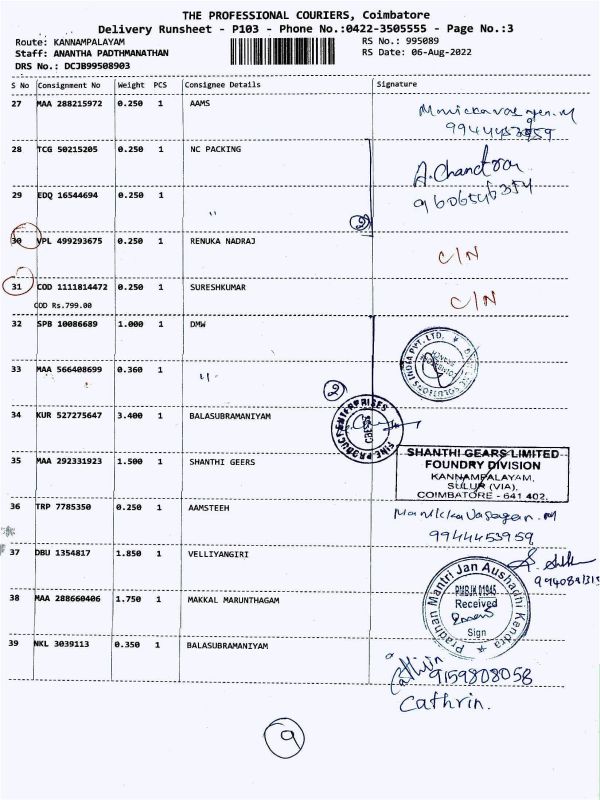 THE PROFESSIONAL COURIERS, Coimbatore
Delivery Runsheet - P103 - Phone No.:0422-3505555 - Page No.:3
Route: KANNAMPALAYAM
Staff: ANANTHA PADTHMANATHAN
DRS No.: DCJB99508903
RS No.: 995089
RS Date: 06-Aug-2022
S No Consignment No Weight PCS Consignee Details Signature
27 MAA 288215972 0.250 1 AAMS
9944453959
28 TCG 50215205 0.250 1 NC PACKING
A.Chandran
9606546354
29 EDQ 16544694 0.250 1 "
30 VPL 499293675 0.250 1 RENUKA NADRAJ C/N
31 COD 1111814472 0.250 1 SURESHKUMAR C/N
COD Rs.799.00
32 SPB 10086689 1.000 1 DMW
33 MAA 566408699 0.360 1 "
2
FINE PRODUCT ENTERPRISES
34 KUR 527275647 3.400 1 BALASUBRAMANIYAM
35 MAA 292331923 1.500 1 SHANTHI GEERS
SHANTHI GEARS LIMITED
FOUNDRY DIVISION
KANNAMPALAYAM,
SULUR (VIA),
COIMBATORE - 641 402.
36 TRP 7785350 0.250 1 AAMSTEEH
Manickkavasagan.M
9944453959
37 DBU 1354817 1.850 1 VELLIYANGIRI
38 MAA 288660406 1.750 1 MAKKAL MARUNTHAGAM
Pradhan Mantri Jan Aushadhi Kendra
PMBJK 01945
Received
Sign
39 NKL 3039113 0.350 1 BALASUBRAMANIYAM
Cathrin
9159808058
Cathrin.
9